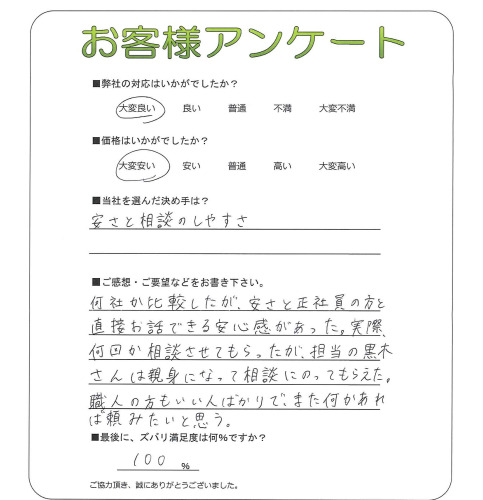 お客様アンケート
■弊社の対応はいかがでしたか?
大変良い 良い 普通 不満 大変不満
■価格はいかがでしたか?
大変安い 安い 普通 高い 大変高い
■当社を選んだ決め手は?
安さと相談のしやすさ
■ご感想・ご要望などをお書き下さい。
何社か比較したが、安さと正社員の方と
直接お話できる安心感があった。実際、
何回か相談させてもらったが、担当の黒木
さんは親身になって相談にのってもらえた。
職人の方もいい人ばかりで、また何かあれ
ば頼みたいと思う。
■最後に、ズバリ満足度は何%ですか?
100 %
ご協力頂き、誠にありがとうございました。